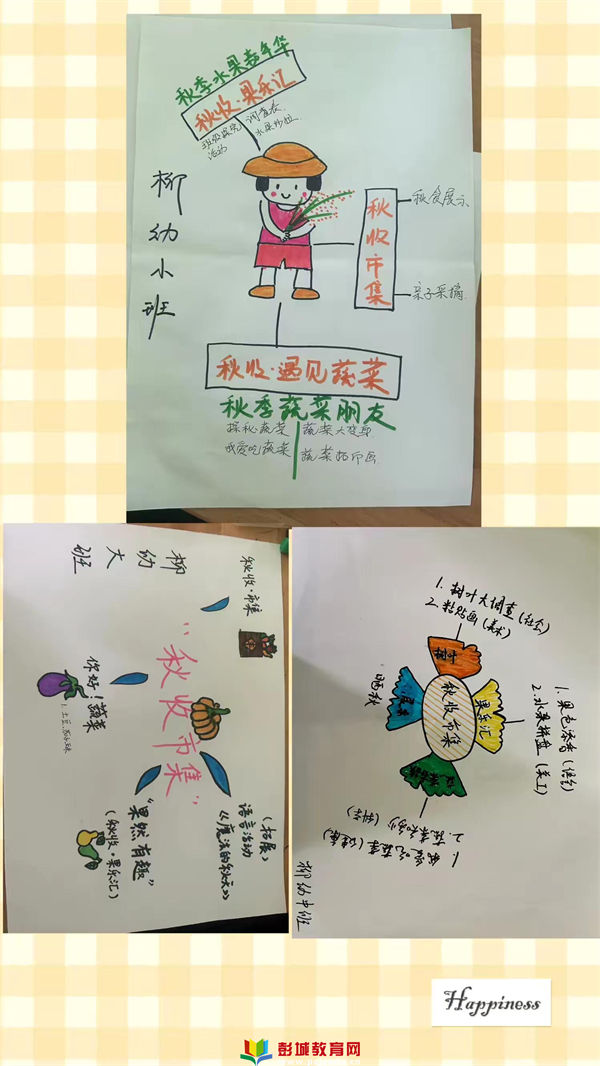 秋季水果嘉年华
秋收·果乐汇
班级探究
活动
调查表
水果沙拉
柳幼小班
秋收市集
秋食展示
亲子采摘
秋收·遇见蔬菜
秋季蔬菜朋友
探秘蔬菜
我爱吃蔬菜
蔬菜大变身
蔬菜拓印画
柳幼大班
秋收·市集
你好！蔬菜
“秋收市集”
“果然有趣”
(秋收·果乐汇)
(拓展)
语言活动
《魔法的秋天》
1. 树叶大调查 (社会)
2. 粘贴画 (美术)
树叶
晒秋
秋收市集
果乐汇
1. 果色添香 (综合)
2. 水果拼盘 (美工)
1. 我爱吃蔬菜 (健康)
2. 蔬菜知多少 (科学)
柳幼中班
Happiness
彭城教育网